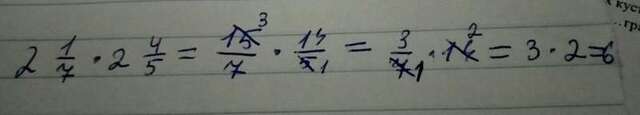 к куст
…гра
2 1/7 · 2 4/5 = 15 3/7 · 14/5 1 = 3/7 1 · 14 2 = 3 · 2 = 6